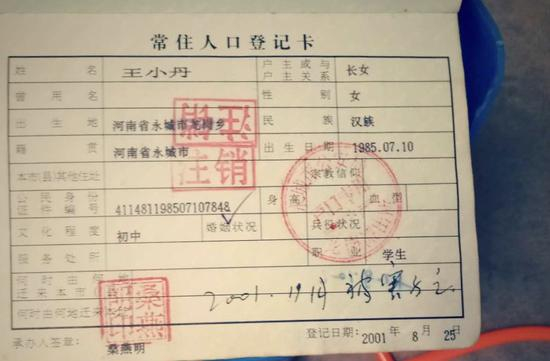 常住人口登记卡
姓名 王小丹 户主或与户主关系 长女
曾用名 性别 女
出生地 河南省永城市 乡 民族 汉族
籍贯 河南省永城市 出生日期 1985.07.10
本市(县)其他住址 宗教信仰
公民身份证件编号 411481198507107848 身高 血型
文化程度 初中 婚姻状况 兵役状况
服务处所 职业 学生
何时由何地迁来本市
何时由何地迁来本
2001.
承办人签章: 桑燕明 登记日期: 2001 年 8 月 25 日
注销